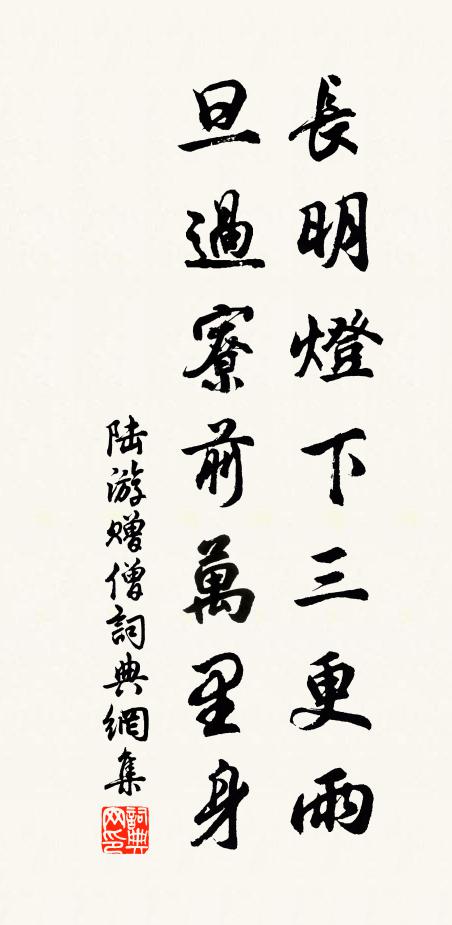 長明燈下三更雨
旦過寮前萬里身
陆游赠僧詞典網集
詞典网印